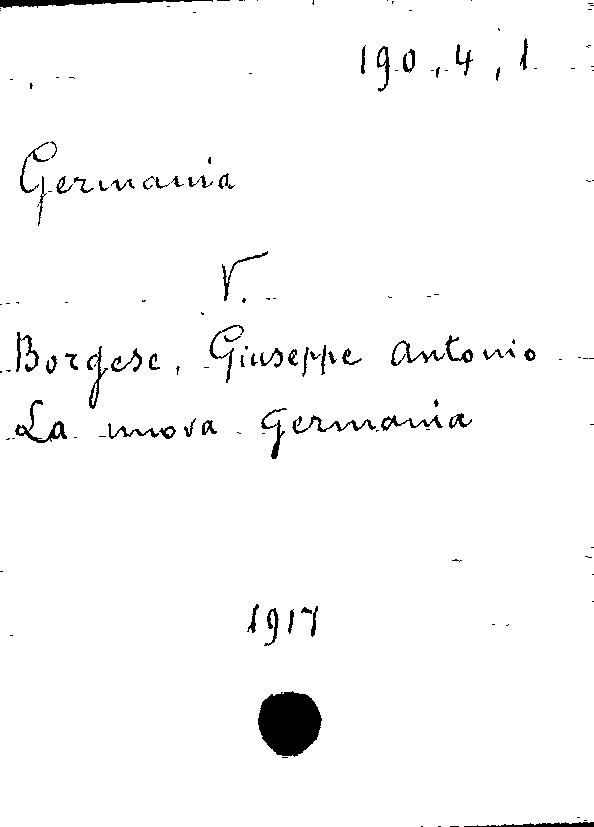 190,4,1
Germania
V.
Borgese, Giuseppe Antonio
La nuova Germania
1917